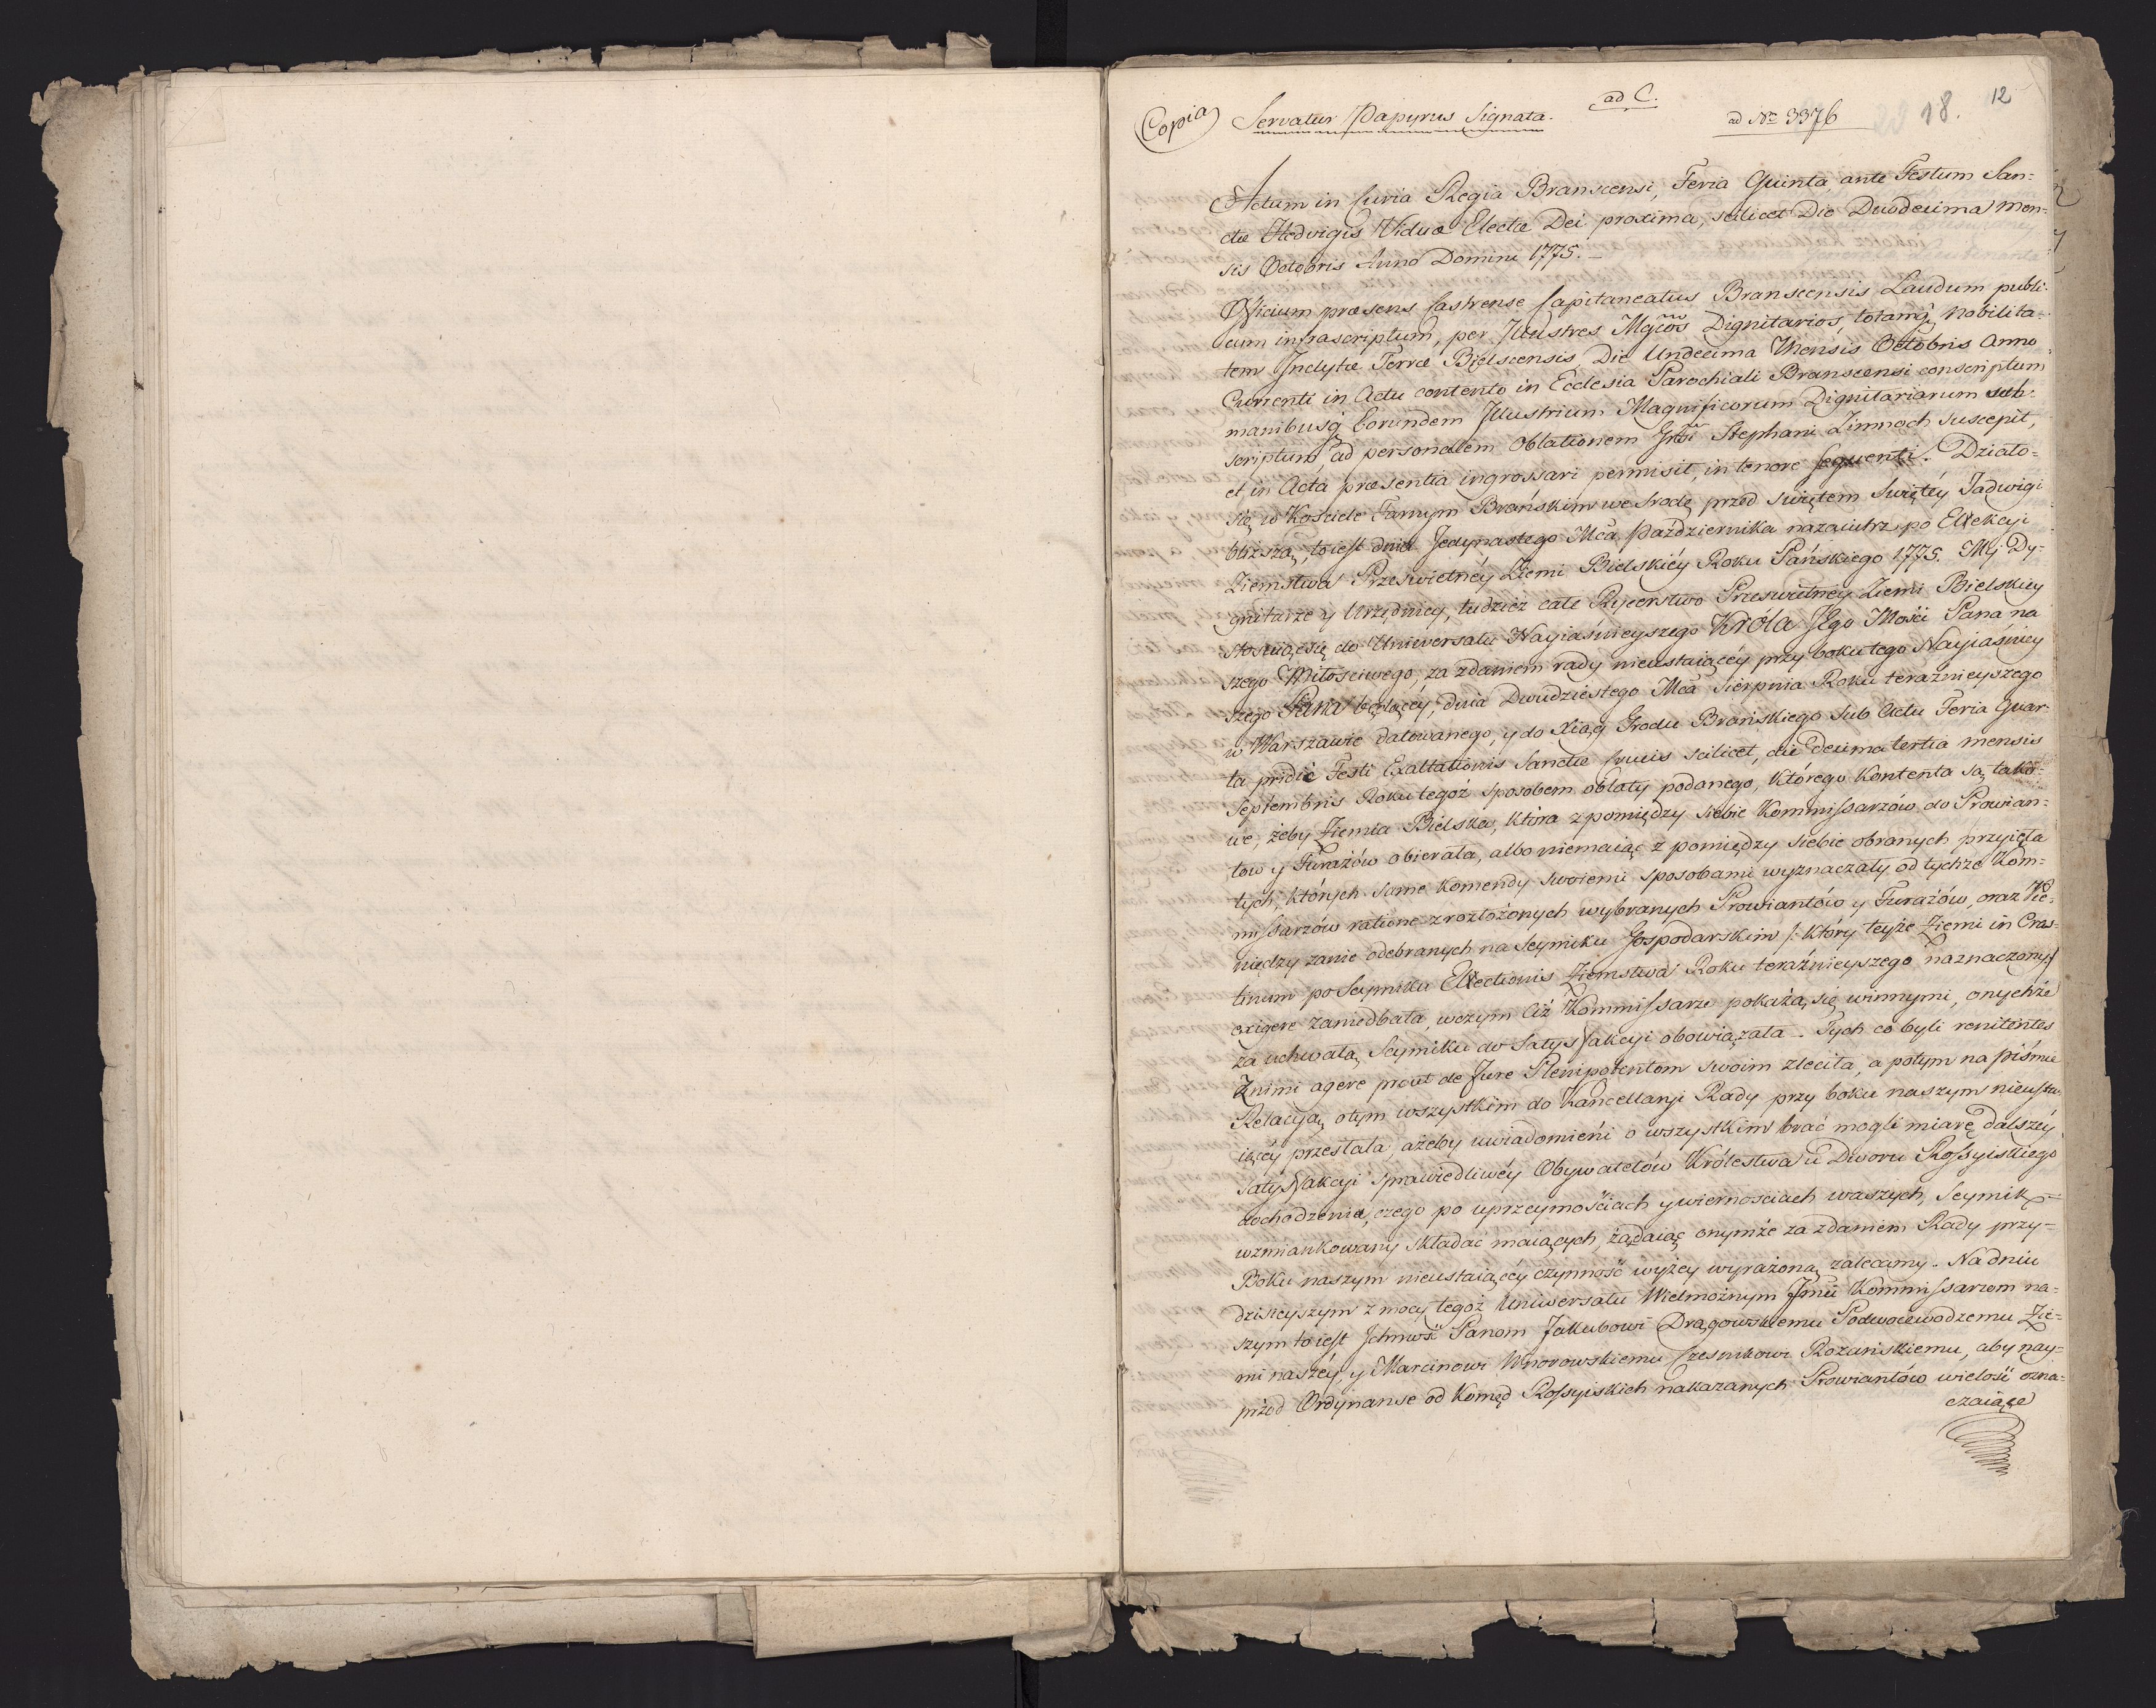 Copia
Servatur Papyrus Signata.
ad C.
ad Nr 3376
18.
12
Actum in Curia Regia Branscensi, Feria Quinta, ante Festum San:
ctæ Hedvigis Viduæ Electæ Dei proxima, scilicet Die Duodecima Men:
sis Octobris Anno Domini 1775.
Officium præsens Castrense Capitaneatus Branscensis Laudum publi:
cum infrascriptum, per Illustres Mgcos Dignitarios, totamq; Nobilita:
tem Inclytæ Terræ Bielscensis Die Undecima Mensis Octobris Anno
Currenti in Actu contento in Ecclesia Parochiali Branscensi conscriptum
manibusq; Eorundem Illustrium Magnificorum Dignitariarum sub:
scriptum, ad personalem Oblationem Gnsi Stephani Zimnoch suscepit,
et in Acta præsentia ingrossari permisit, in tenore sequenti. Działo=
się w Kościele Farnym Brańskim we Srodę przed Swiętem Swiętéy Jadwigi
bliższą, toiest dnia Jedynastego Mca Października nazaiutrz po Elekcyi
Ziemstwa Prześwietnéy Ziemi Bielskiéy Roku Pańskiego 1775. My Dy=
gnitarze y Urzędnicy, tudzież całe Rycerstwo Prześwietnéy Ziemi Bielskiey
stosuiąc się do Uniwersału Nayiaśnieyszego Króla Jego Mości Pana na
szego Miłościwego, za zdaniem rady nieustaiącéy przy boku tego Nayiaśniey
szego Pana będącéy, dnia Dwudziestego Mca Sierpnia Roku teraźnieyszego
w Warszawie datowanego, y do Xiąg Grodu Brańskiego Sub Actu Feria Quar:
ta pridie Festi Exaltationis Sanctæ Crucis scilicet, die Decima tertia mensis
Septembris Roku tegoż sposobem oblaty podanego, którego Kontenta są tako=
we, żeby Ziemia Bielska, która z pomiędzy siebie Kommissarzów do Prowian:
tow y Furażów obierała, albo niemaiąc z pomiędzy siebie obranych przyięła
tych, których same Komendy swoiemi sposobami wyznaczały, od tychże Kom=
missarzów ratione zrozłożonych wybranych Prowiantów y Furażów, oraz Pie:
niędzy zanie odebranych na Seymiku Gospodarskim /: który teyże Ziemi in Cras=
tinum po Seymiku Electionis Ziemstwa Roku teraźnieyszego naznaczony :/
exigere zaniedbała, wczym Ciż Kommissarze pokażą się winnymi, onychże
za uchwałą Seymiku do Satysfakcyi obowiązała. Tych co byli renitentes
Znimi agere prout de Jure Plenipotentom swoim zleciła, a potym na piśmie
Relacyą otym wszystkim do Kancellaryi Rady przy boku naszym nieusta:
iącéy przesłała, ażeby uwiadomieni o wszystkim brać mogli miarę dalszéy
satysfakcyi sprawiedliwéy Obywatelów Królestwa u Dworu Rossyiskiego
dochodzenia, czego po uprzeymościach y wiernościach waszych, Seymik
wzmiankowany składać maiących, żądaiąc onymże za zdaniem Rady przy=
Boku naszym nieustaiącéy czynność wyżey wyrażoną zalecamy. Na dniu
dzisieyszym z mocy tegoż Uniwersału Wielmożnym Jmci Kommissarzom na=
szym toiest Ichmość Panom Jakubowi Drągowskiemu Podwoiewodzemu Zie=
mi naszéy, y Marcinowi Wnorowskiemu Czesnikowi Rożańskiemu, aby nay=
przód Ordynanse od Komęd Rossyiskich nakazanych Prowiantów wielość ozna=
czaiące